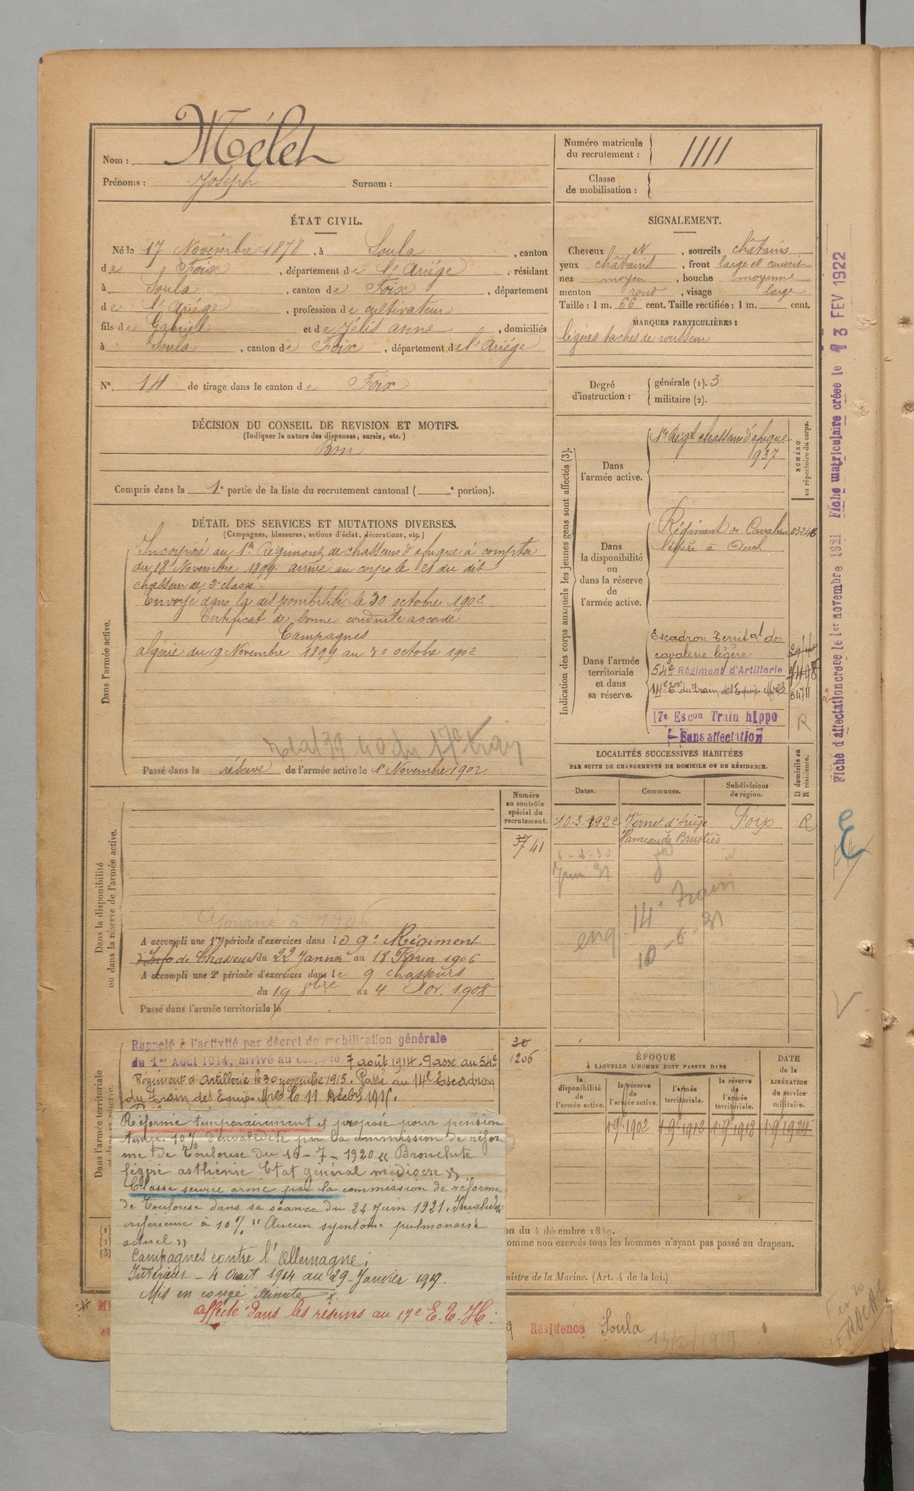 Nom : Mélet
Prénoms : Joseph Surnom :
Numéro matricule du recrutement : 1111
Classe de mobilisation :
ÉTAT CIVIL.
Né le 17 Novembre 1878, à Soula, canton
de Foix, département de l'Ariége, résidant
à Soula, canton de Foix, département
de l'Ariége, profession de cultivateur
fils de Gabriel et de Jélis anne, domiciliés
à Soula, canton de Foix, département de l'Ariége
N° 14 de tirage dans le canton de Foix
SIGNALEMENT.
Cheveux et, sourcils châtains
yeux châtains, front large et couvert
nez moyen, bouche moyenne
menton rond, visage large
Taille : 1 m. 66 cent. Taille rectifiée : 1 m. cent.
MARQUES PARTICULIÈRES :
légères taches de rousseur
Degré d'instruction : générale (1). 3
militaire (2).
DÉCISION DU CONSEIL DE REVISION ET MOTIFS.
(Indiquer la nature des dispenses, sursis, etc.)
Bon
Compris dans la 1e partie de la liste du recrutement cantonal ( e portion).
DÉTAIL DES SERVICES ET MUTATIONS DIVERSES.
(Campagnes, blessures, actions d'éclat, décorations, etc.)
Dans l'armée active.
Incorporé au 1er Régiment de chasseurs d'afrique à compter
du 18 Novembre 1899 arrivé au corps le et du dit
chasseur de 2e classe
Envoyé dans la disponibilité le 30 octobre 1902
Certificat de bonne conduite accordé
Campagnes
algérie du 19 Novembre 1899 au 30 octobre 1902
Passé dans la réserve de l'armée active le 1er Novembre 1902
Indication des corps auxquels les jeunes gens sont affectés (3).
NUMÉRO au répertoire du corps.
Dans l'armée active.
1er Régt chasseurs d'afrique
937
Dans la disponibilité ou dans la réserve de l'armée active.
Régiment de Cavalerie
légère à Auch
Dans l'armée territoriale et dans sa réserve.
Escadron Territal de
cavalerie légère
54e Régiment d'Artillerie
14e Eon du train des Equip. Mres
17e Escon Train hippo
Sans affectation
R
LOCALITÉS SUCCESSIVES HABITÉES
PAR SUITE DE CHANGEMENTS DE DOMICILE OU DE RÉSIDENCE.
D domicile ou R résidence.
Dates. Communes. Subdivisions de région.
10.3.1922 Foix R
eng 14e Train
10-6-31
Numéro au contrôle spécial du recrutement.
41
Dans la disponibilité ou dans la réserve de l'armée active.
A accompli une 1re période d'exercices dans le 9e Régiment
de Chasseurs du 22 Janvier au 18 Février 1906
A accompli une 2e période d'exercices dans le 9 chasseurs
du 19 8bre au 4 Nov. 1908
Passé dans l'armée territoriale le
1206
Dans l'armée territoriale
Rappelé à l'activité par décret de mobilisation générale
du 1er Août 1914, arrivé au corps le 7 août 1914. Passé au 54e
Régiment d'Artillerie le 30 novembre 1915. Passé au 14e Escadron
du Train des Equip. Mres le 11
Réformé temporairement et proposé pour pension
temp. 10% d'invalidité par la commission de réfor
me de Toulouse du 16-7-1920 « Bronchite
légère asthénie Etat général médiocre »
Classé service armé par la commission de réforme
de Toulouse dans sa séance du 24 Juin 1921. Invalidité
inférieure à 10% " Aucun symptome pulmonaire
actuel »
Campagnes contre l'Allemagne :
Intérieur - 4 Août 1914 au 29 Janvier 1919.
Mis en congé illimité
affecté dans les réserves au 17e E. T. H.
ÉPOQUE
À LAQUELLE L'HOMME DOIT PASSER DANS
DATE de la LIBÉRATION du service militaire.
la disponibilité de l'armée active. la réserve de l'armée active. l'armée territoriale. la réserve de l'armée territoriale.
on du 4 décembre 1889.
omme non exercés tous les hommes n'ayant pas passé au drapeau.
nistre de la Marine. (Art. 4 de la loi.)
Résidence Soula
Fiche d'affectation créée le 1er novembre 1921 Fiche matriculaire créée le 13 FEV 1922